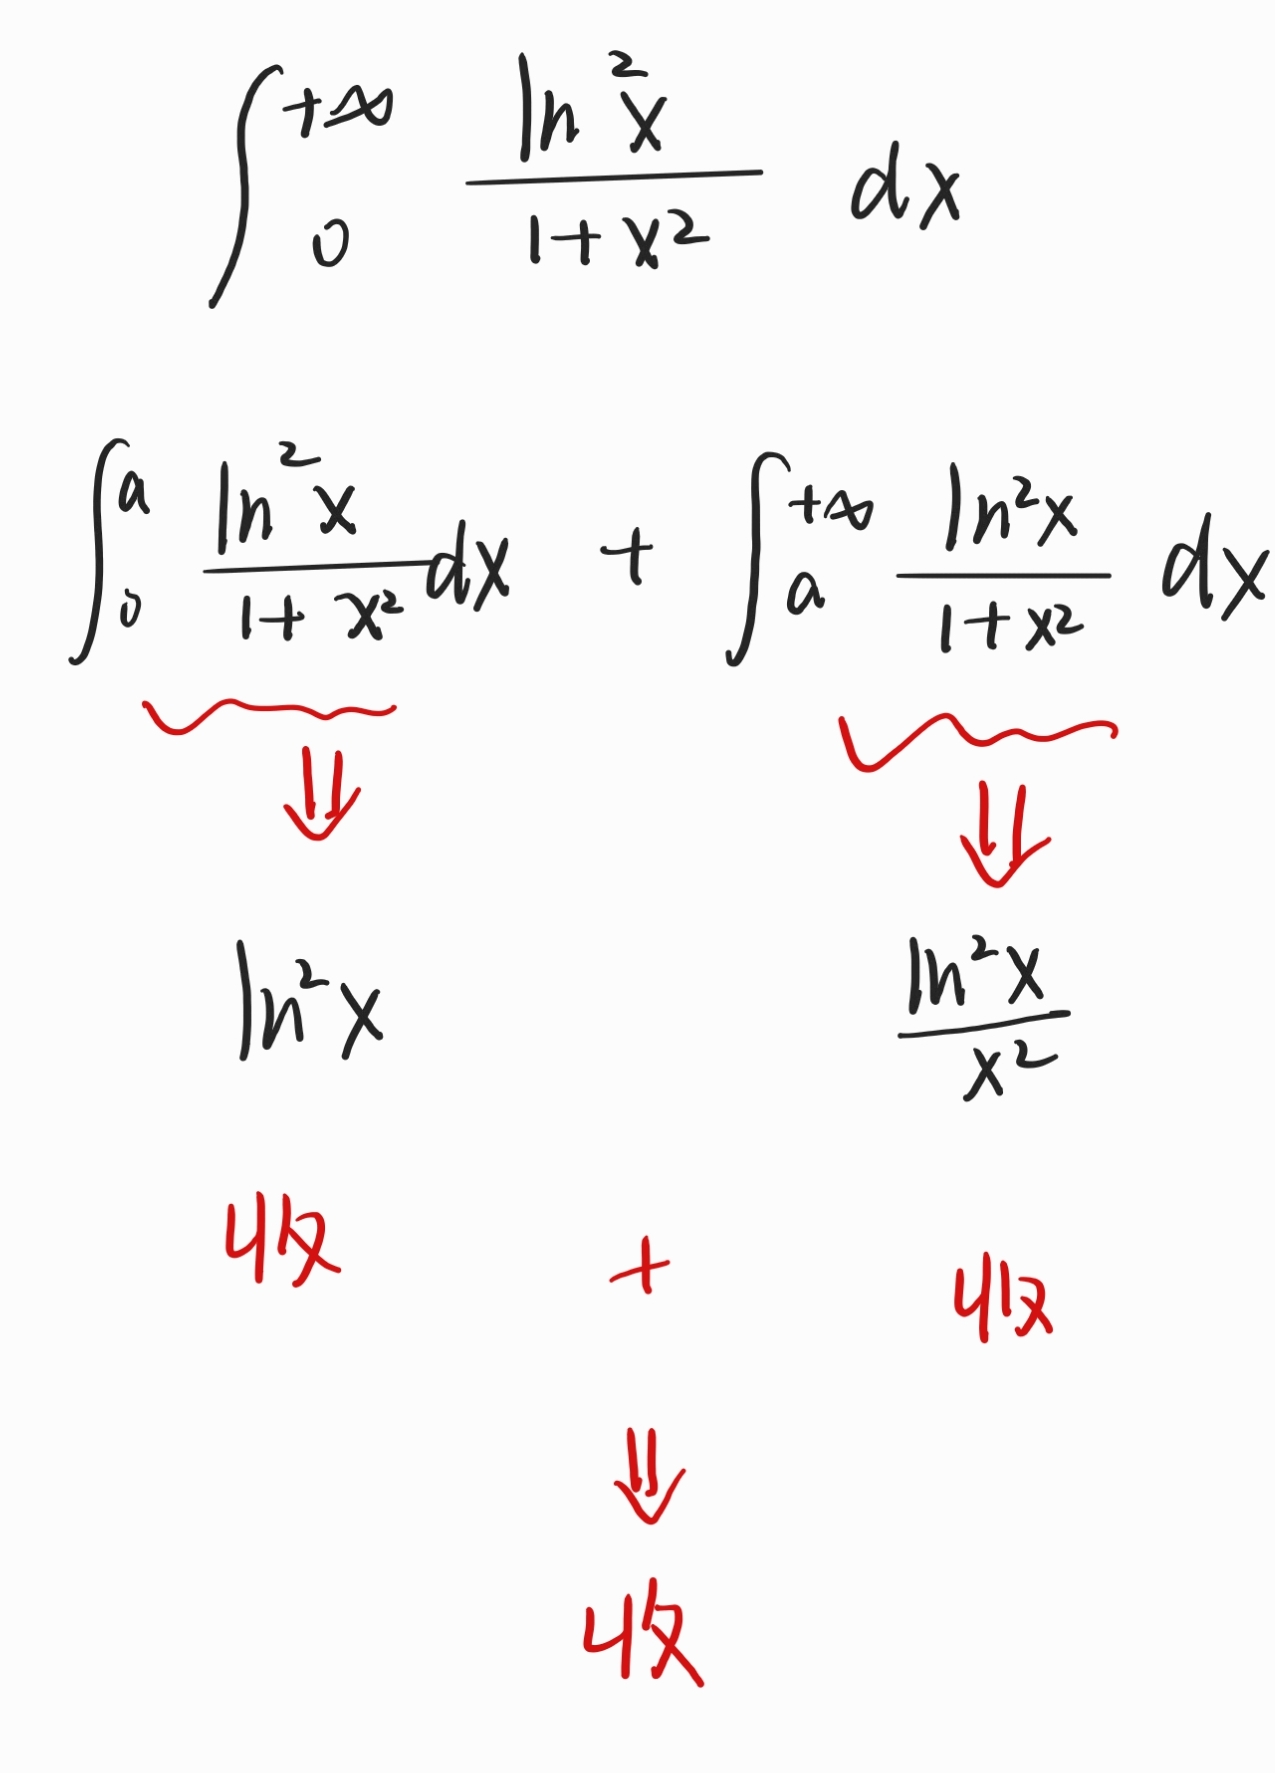 ∫₀^{+∞} \frac{ln²x}{1+x²} dx
∫₀^a \frac{ln²x}{1+x²} dx + ∫ₐ^{+∞} \frac{ln²x}{1+x²} dx
⇓ ⇓
ln²x \frac{ln²x}{x²}
收 + 收
⇓
收